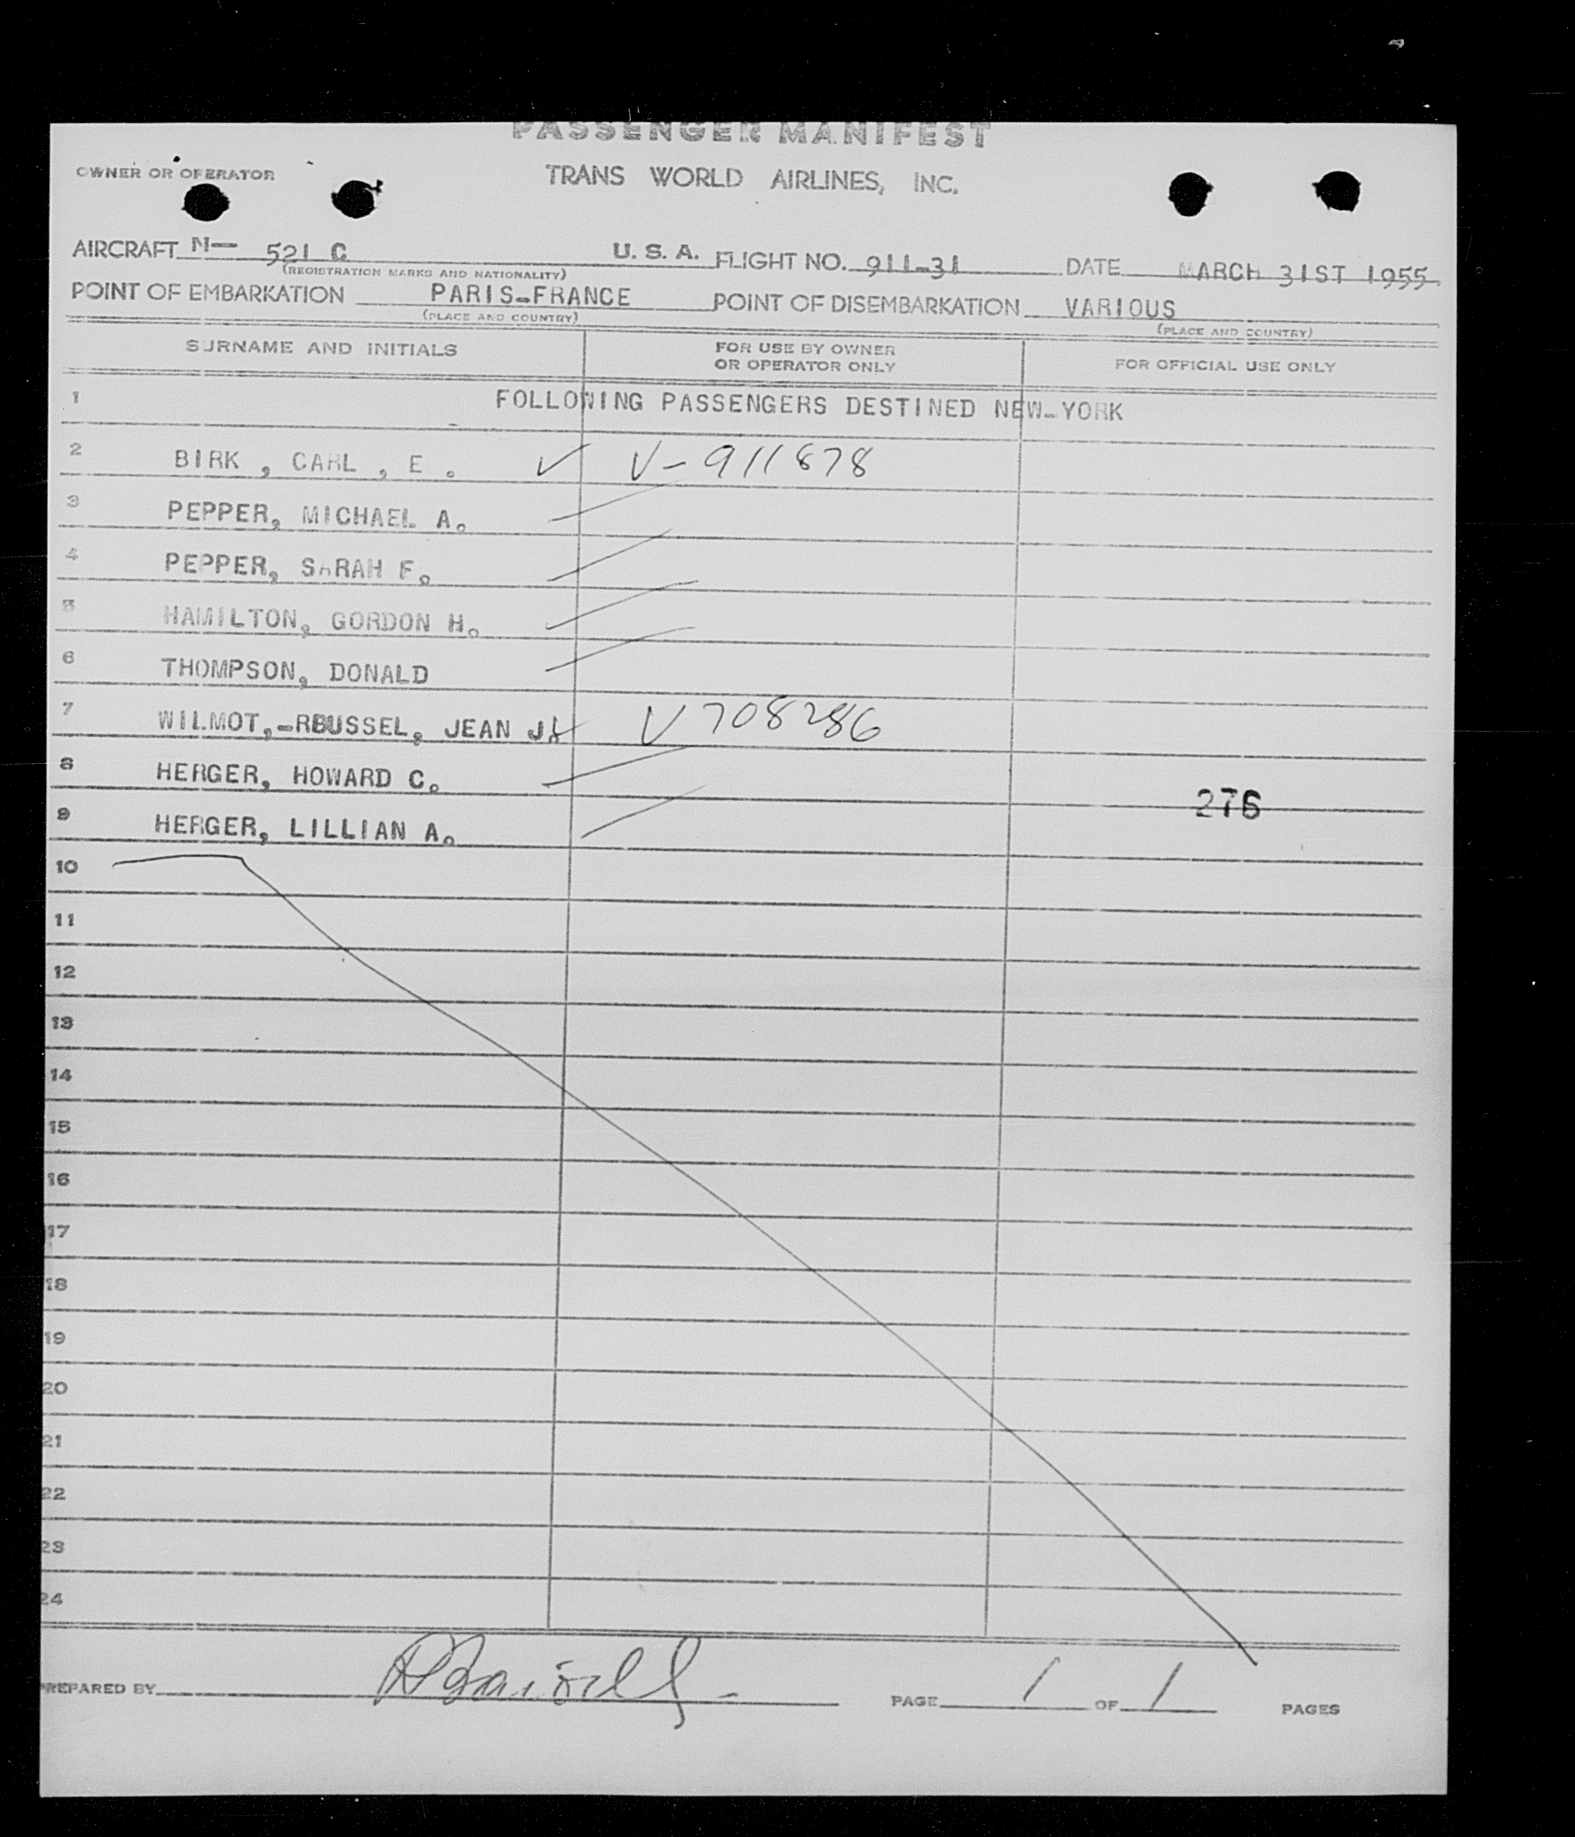 PASSENGER MANIFEST
OWNER OR OPERATOR TRANS WORLD AIRLINES, INC.
AIRCRAFT N— 521 C U. S. A. FLIGHT NO. 911-31 DATE MARCH 31ST 1955
(REGISTRATION MARKS AND NATIONALITY)
POINT OF EMBARKATION PARIS-FRANCE POINT OF DISEMBARKATION VARIOUS
(PLACE AND COUNTRY) (PLACE AND COUNTRY)
SURNAME AND INITIALS FOR USE BY OWNER OR OPERATOR ONLY FOR OFFICIAL USE ONLY
1 FOLLOWING PASSENGERS DESTINED NEW-YORK
2 BIRK , CARL , E . ✓ V-911878
3 PEPPER, MICHAEL A.
4 PEPPER, SARAH F.
5 HAMILTON, GORDON H.
6 THOMPSON, DONALD
7 WILMOT,-ROUSSEL, JEAN J. V 708286
8 HERGER, HOWARD C.
9 HERGER, LILLIAN A. 276
10
11
12
13
14
15
16
17
18
19
20
21
22
23
24
PREPARED BY PAGE 1 OF 1 PAGES